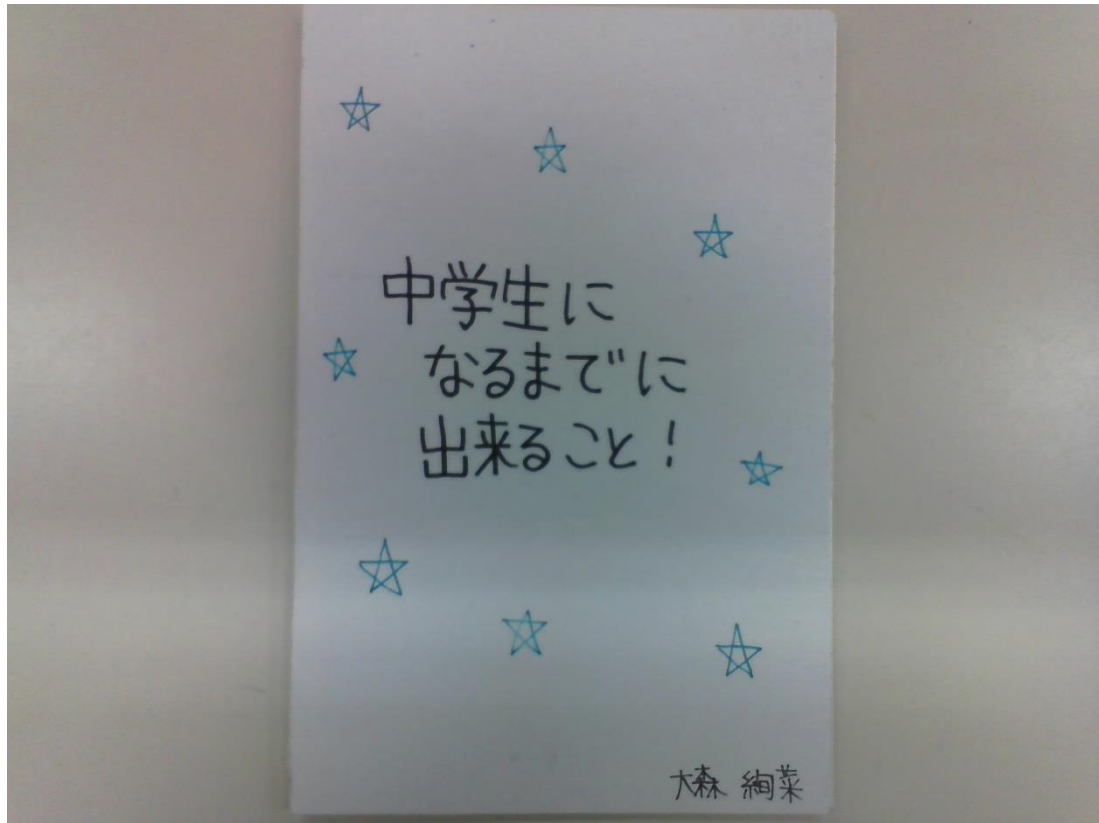 中学生に
なるまでに
出来ること!
大森 絢菜